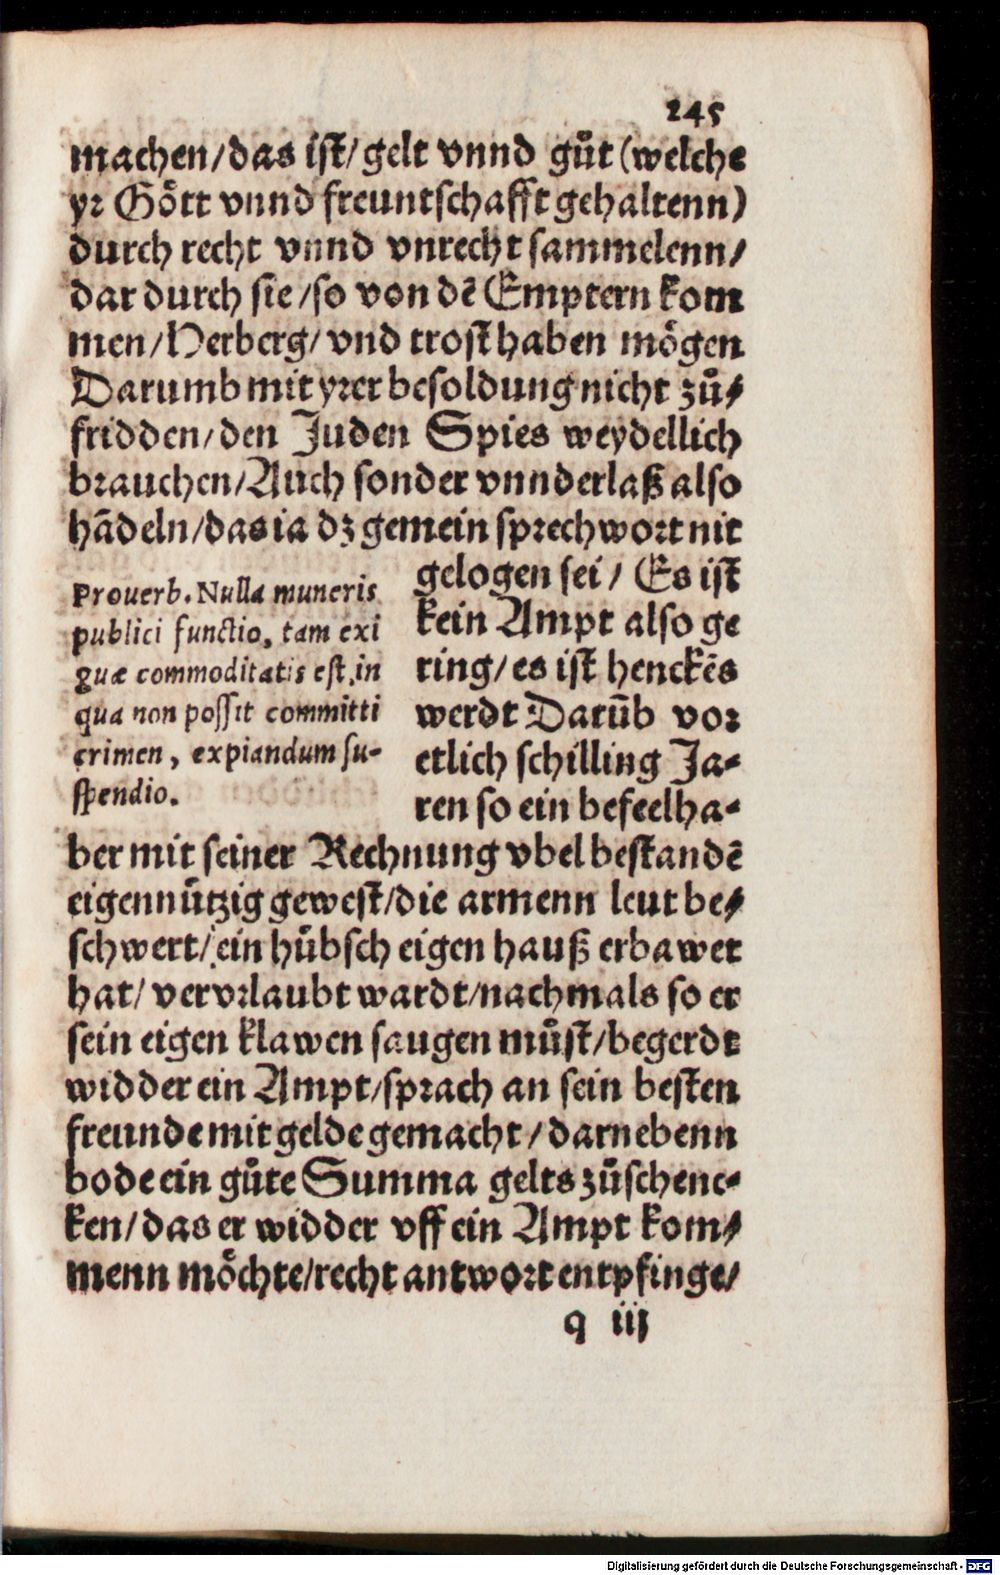 245
machen/das ist/gelt vnnd gůt (welche
yr Gött vnnd freuntschafft gehaltenn)
durch recht vnnd vnrecht sammelenn/
dar durch sie/so von dẽ Emptern kom
men/Herberg/vnd trost haben mögen
Darumb mit yrer besoldung nicht zů⸗
fridden/den Juden Spies weydellich
brauchen/Auch sonder vnnderlaß also
hãdeln/das ia dz gemein sprechwort nit
gelogen sei/ Es ist
kein Ampt also ge
ring/es ist henckẽs
werdt Darũb vor
etlich schilling Ja⸗
ren so ein befeelha⸗
Prouerb. Nulla muneris
publici functio, tam exi
guæ commoditatis est, in
qua non possit committi
crimen, expiandum su-
spendio.
ber mit seiner Rechnung vbel bestandẽ
eigennützig gewest/die armenn leut be⸗
schwert/ein hübsch eigen hauß erbawet
hat/ vervrlaubt wardt/nachmals so er
sein eigen klawen saugen můst/begerdt
widder ein Ampt/sprach an sein besten
freunde mit gelde gemacht/darnebenn
bode ein gůte Summa gelts zůschenc⸗
ken/das er widder vff ein Ampt kom⸗
menn möchte/recht antwort entpfinge/
q iij
Digitalisierung gefördert durch die Deutsche Forschungsgemeinschaft - DFG